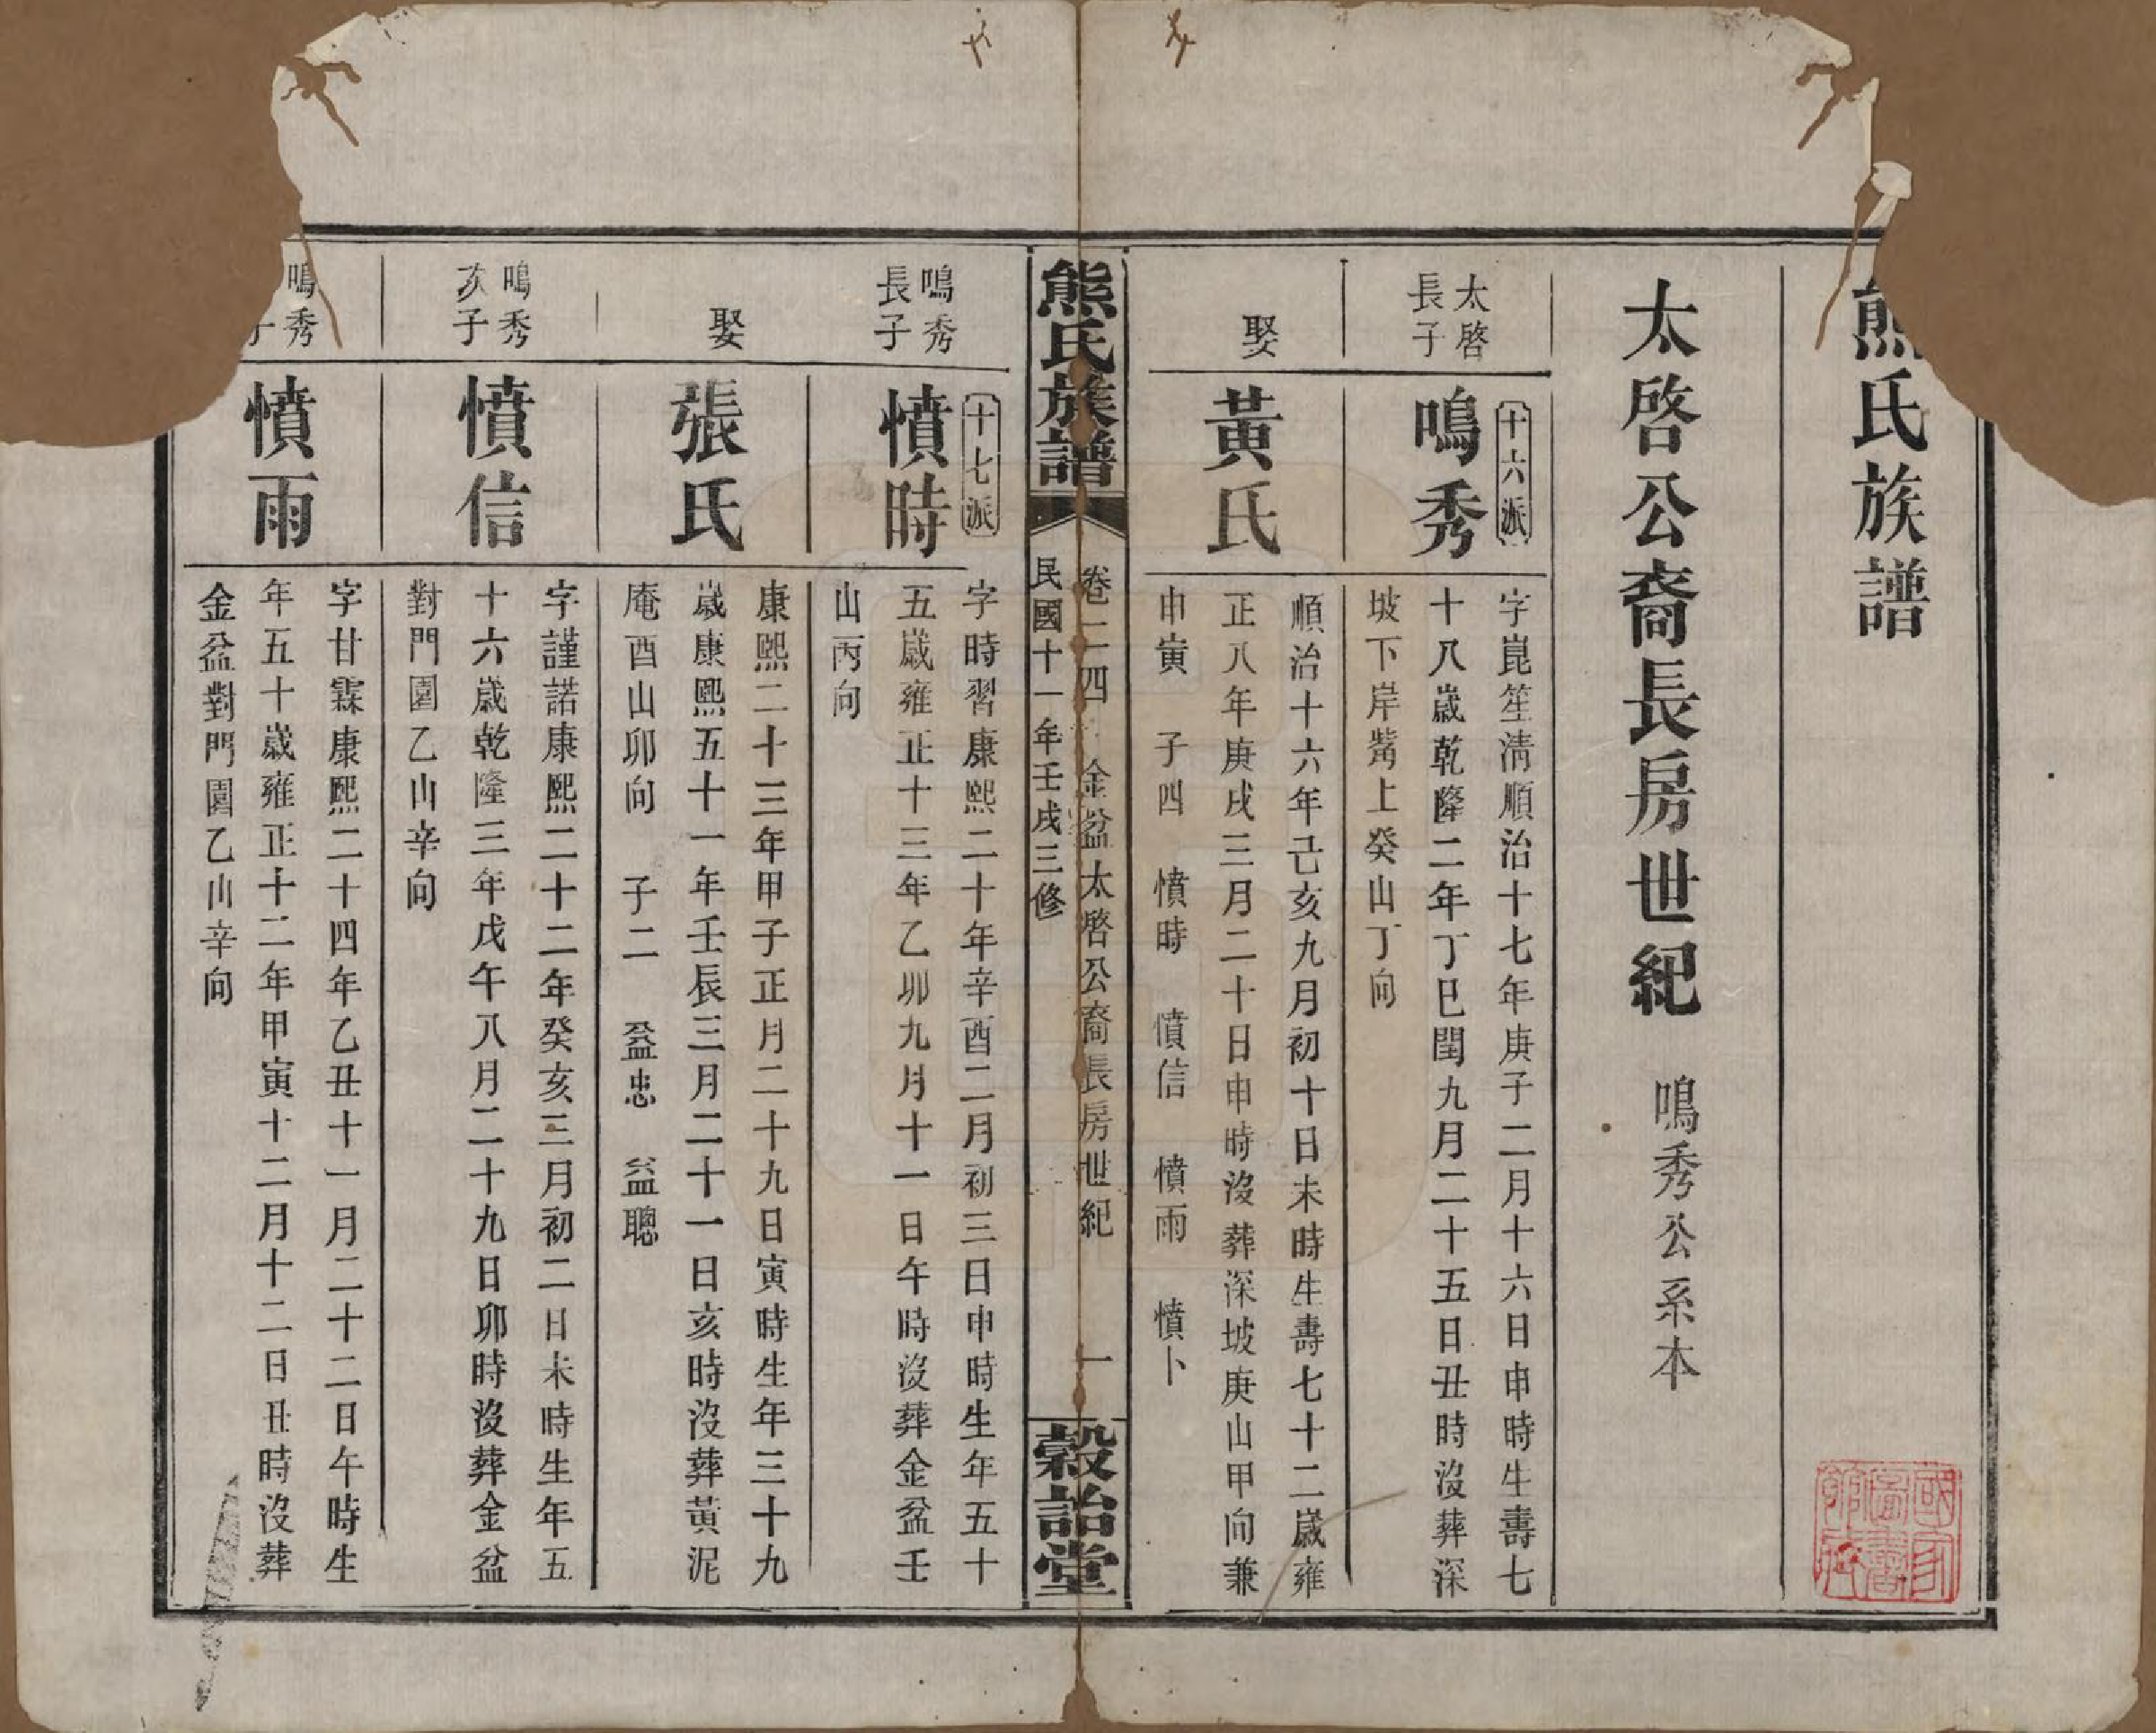 熊氏族譜
太啓公裔長房世紀 鳴秀公系本
太啓
長子
十六派
鳴秀
字崑笙清順治十七年庚子二月十六日申時生壽七
十八歲乾隆二年丁巳閏九月二十五日丑時沒葬深
坡下岸嘴上癸山丁向
娶
黃氏
順治十六年己亥九月初十日未時生壽七十二歲雍
正八年庚戌三月二十日申時沒葬深坡庚山甲向兼
申寅 子四 憤時 憤信 憤雨 憤卜
熊氏族譜
卷二四 金盆太啓公裔長房世紀 一
民國十一年壬戌三修
穀詒堂
鳴秀
長子
十七派
憤時
字時習康熙二十年辛酉二月初三日申時生年五十
五歲雍正十三年乙卯九月十一日午時沒葬金盆壬
山丙向
娶
張氏
康熙二十三年甲子正月二十九日寅時生年三十九
歲康熙五十一年壬辰三月二十一日亥時沒葬黃泥
庵酉山卯向 子二 益忠 益聰
鳴秀
次子
憤信
字謹諾康熙二十二年癸亥三月初二日未時生年五
十六歲乾隆三年戊午八月二十九日卯時沒葬金盆
對門園乙山辛向
鳴秀
子
憤雨
字甘霖康熙二十四年乙丑十一月二十二日午時生
年五十歲雍正十二年甲寅十二月十二日丑時沒葬
金盆對門園乙山辛向